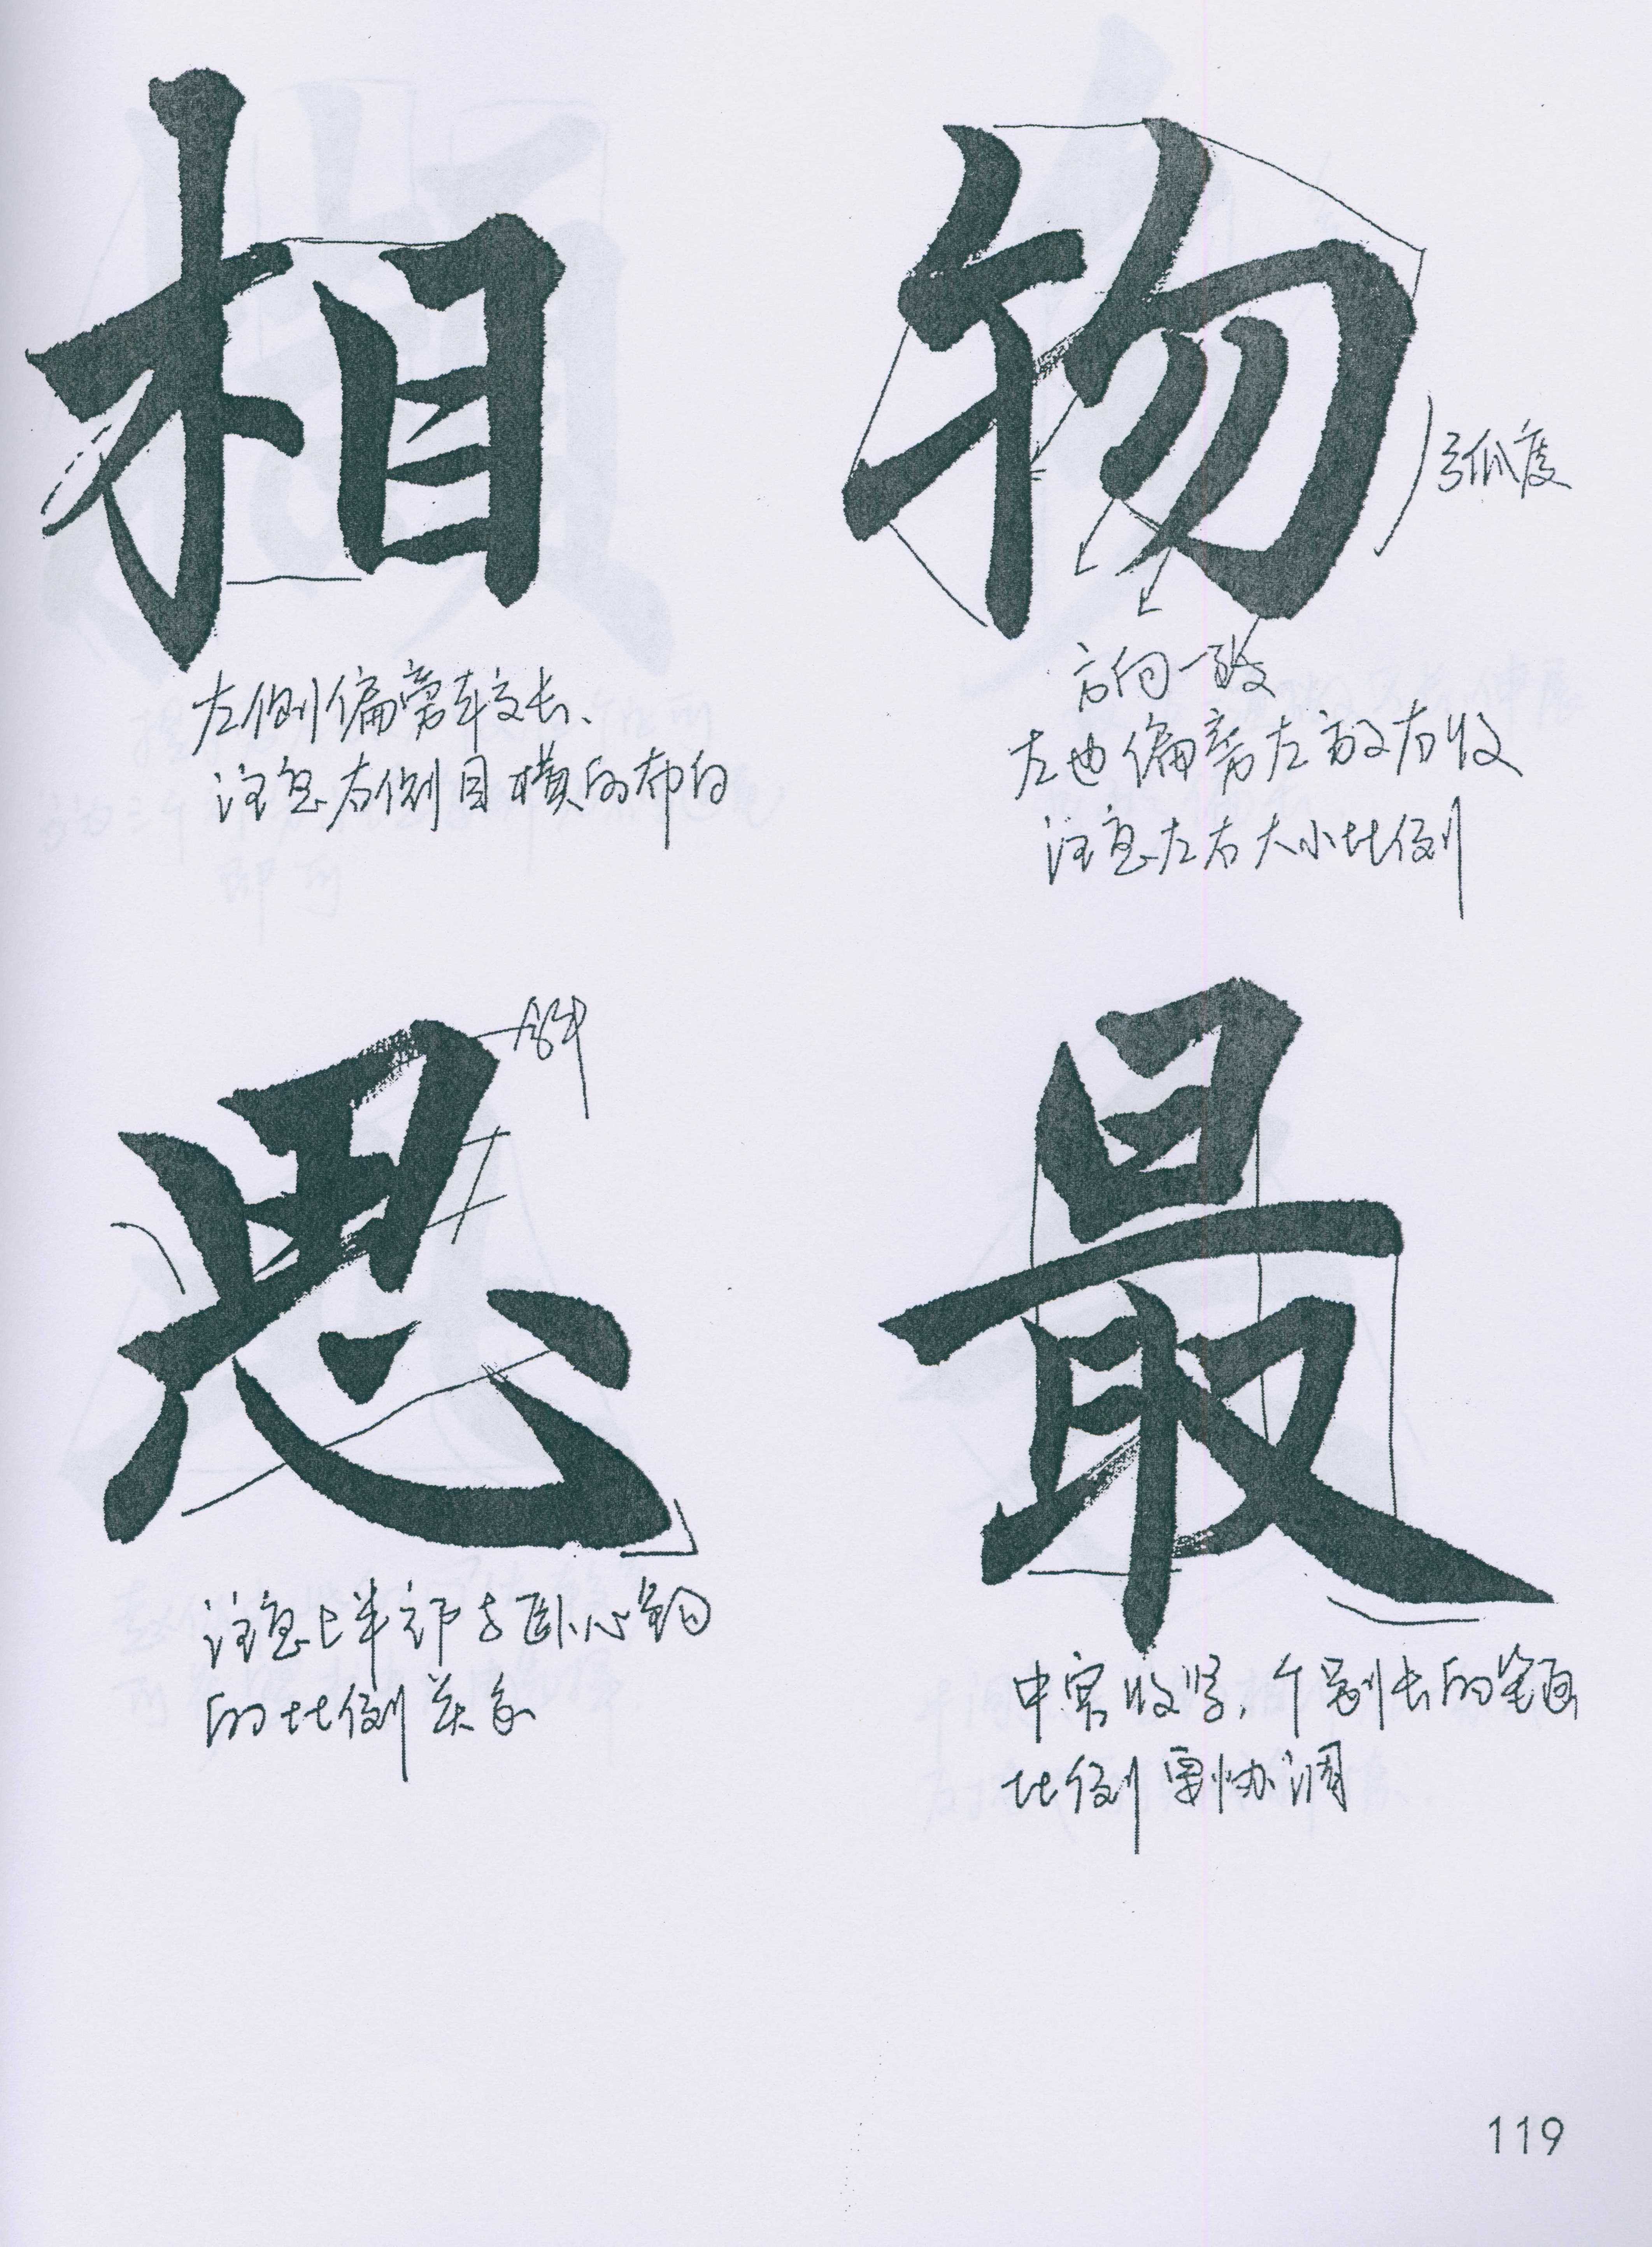 相
左侧偏旁较长、
注意右侧目横的布白
物
弧度
方向一致
左边偏旁左放右收
注意左右大小比例
思
斜
注意上半部与卧心钩
的比例关系
最
中宫收紧，个别长的笔画
比例要协调
119